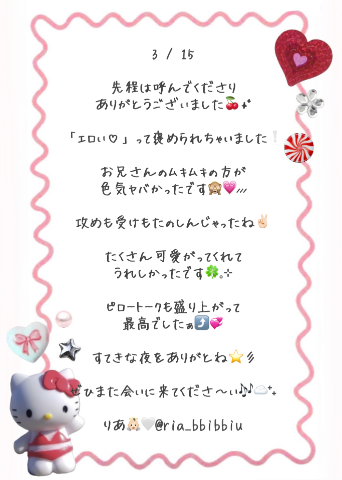 3 / 15
先程は呼んでくださり
ありがとうございました🍒₊˚
「エロい♡」って褒められちゃいました❕
お兄さんのムキムキの方が
色気ヤバかったです🙈💗///
攻めも受けもたのしんじゃったね✌🏻
たくさん可愛がってくれて
うれしかったです🍀.˖⊹
ピロートークも盛り上がって
最高でしたぁ⤴️💞
すてきな夜をありがとね⭐️彡
ぜひまた会いに来てくださ〜い🎶☁️⁺.
りあ👶🏻🤍@ria_bbibbiu